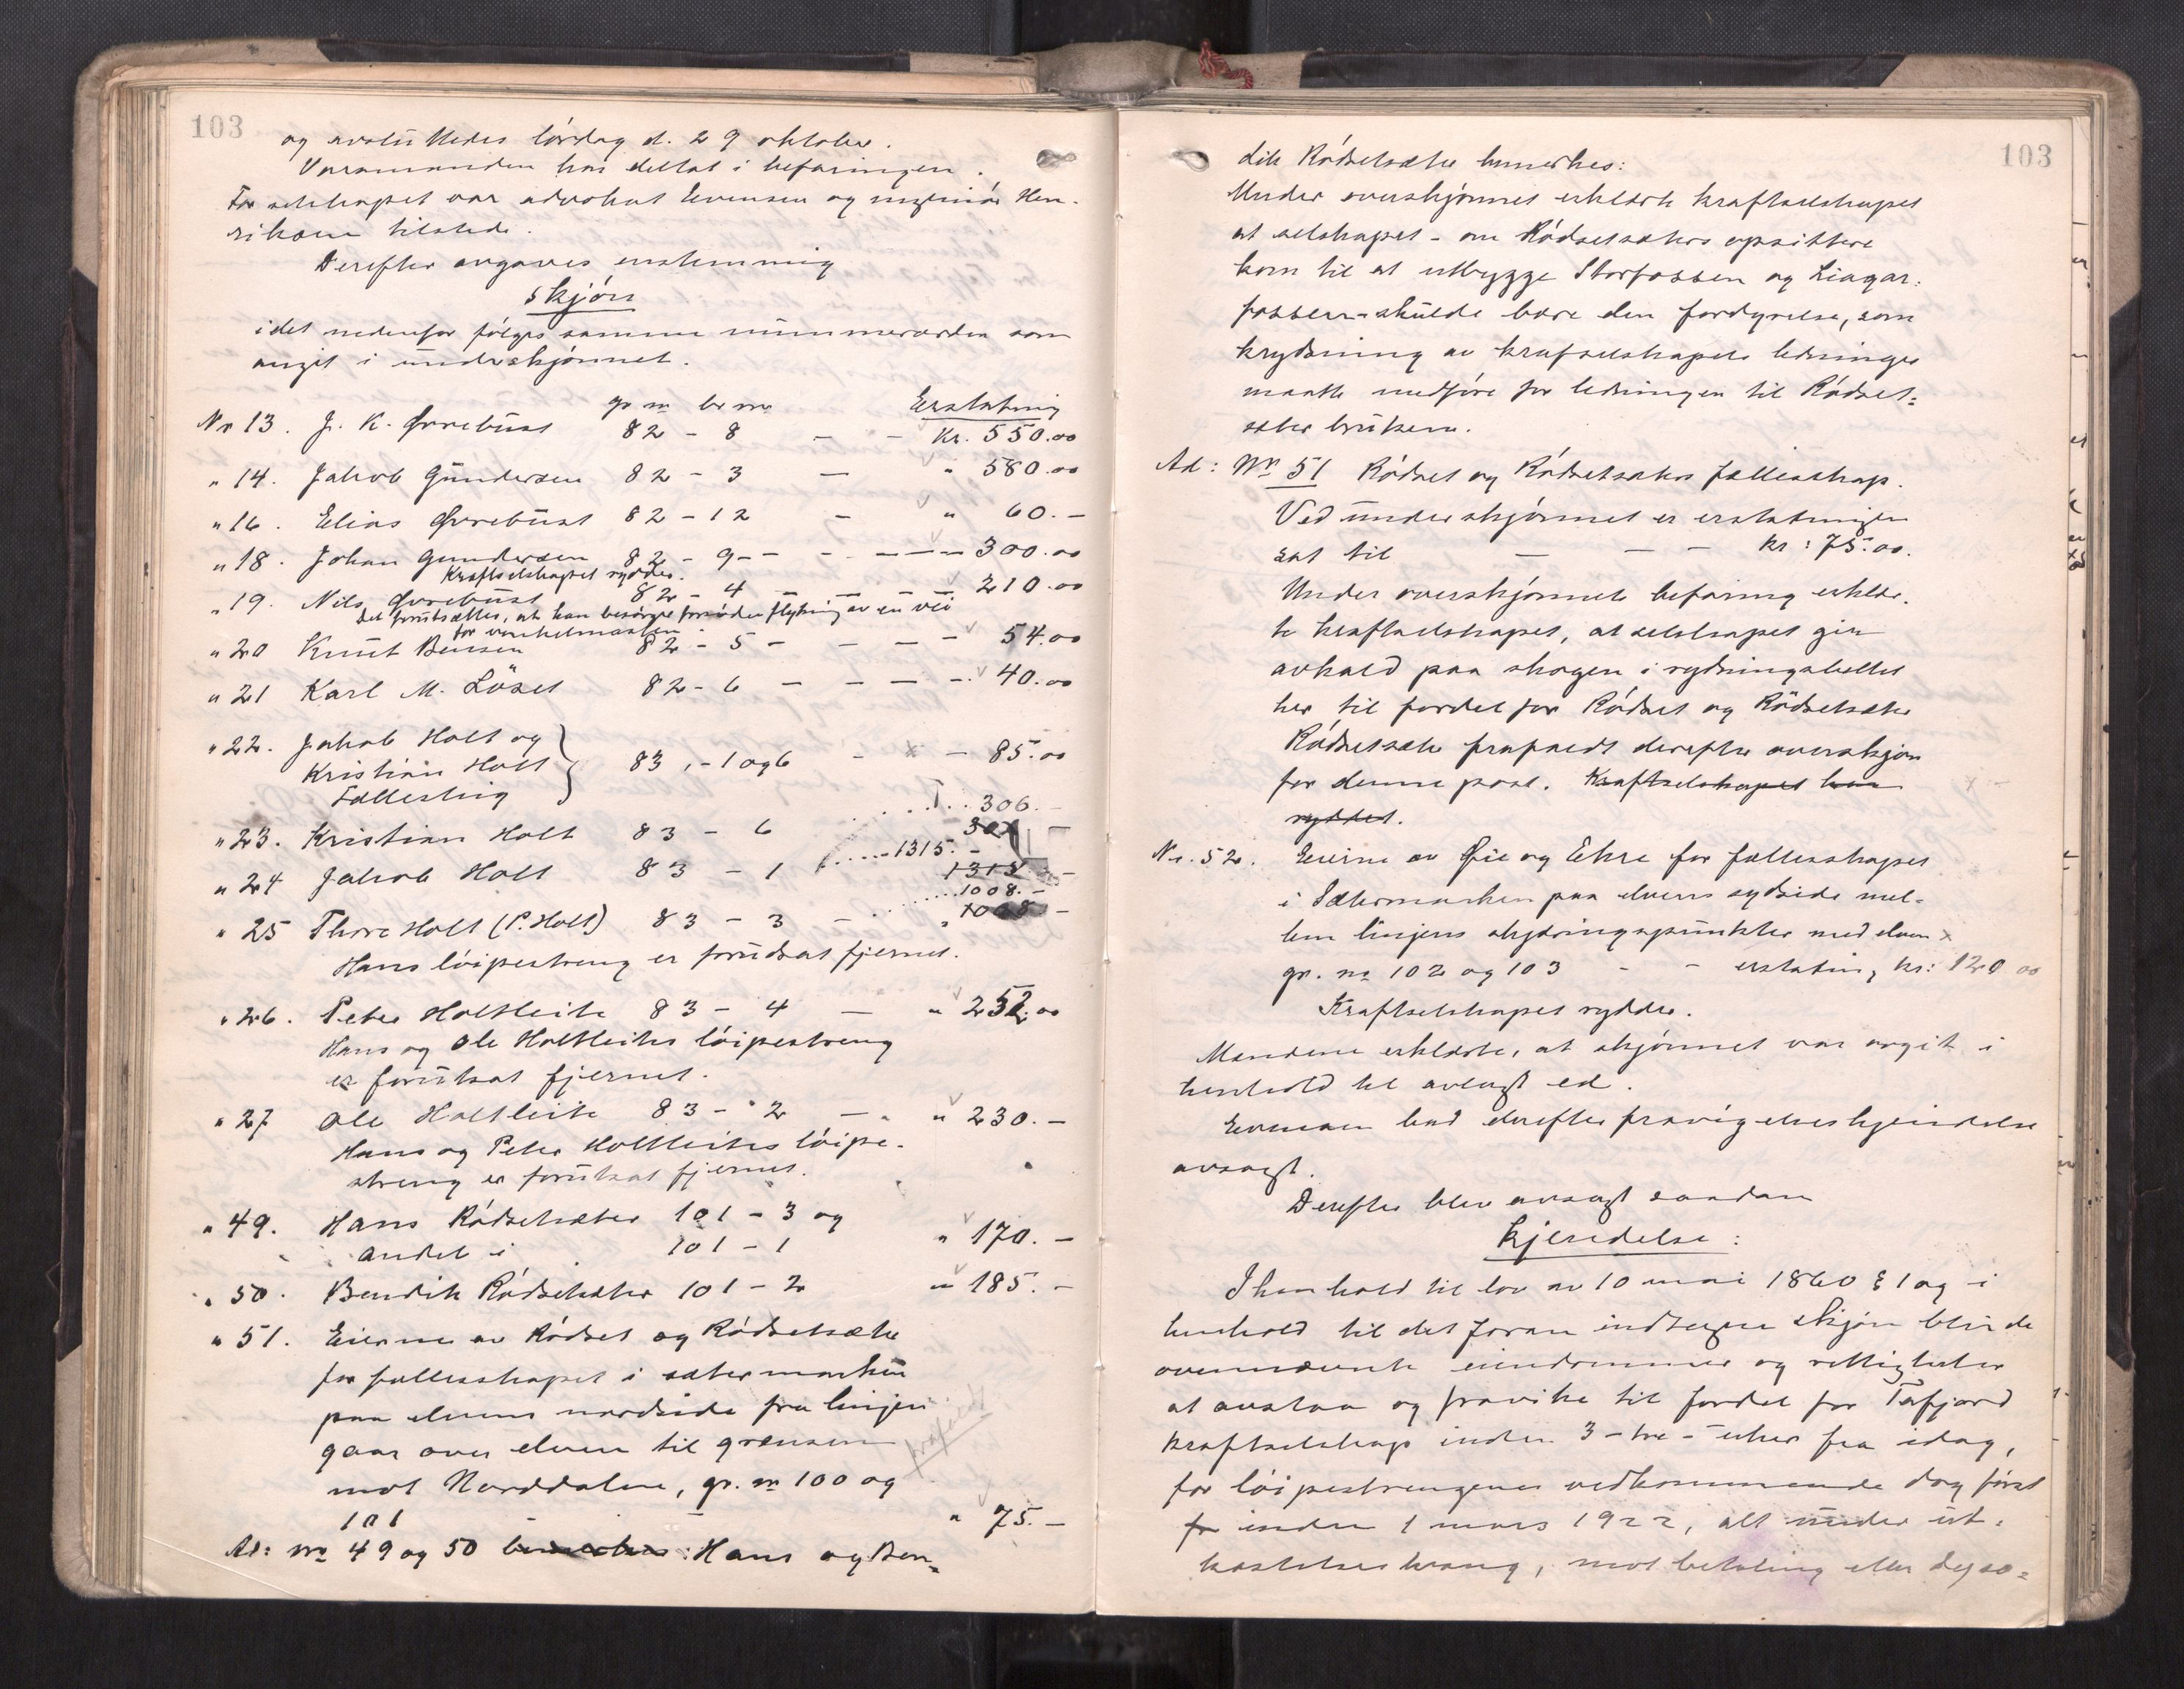 103
og avsluttedes lørdag d. 29 oktober.
Varamanden har deltat i befaringen.
For selskapet var advokat Evensen og ingeniør Hen-
riksen tilstede.
Derefter avgaves enstemmig
skjøn
idet nedenfor følges samme nummerorden som
angit i underskjønnet.
gr nr br nr Erstatning
Nr 13. J. K. Øvrebust 82 - 8 - - Kr. 550.00
" 14. Jakob Gundersen 82 - 3 - " 580.00
" 16. Elias Øvrebust 82 - 12 - " 60.-
" 18. Johan Gundersen 82 - 9 - - - - 300.00
Kraftselskapet rydder.
" 19. Nils Øvrebust 82 - 4 - - - 210.00
Det forutsættes, at han besørger flytning av en vei
for vinkelmasten.
" 20 Knut Bensen 82 - 5 - - - - 54.00
" 21 Karl M. Löset 82 - 6 - - - - 40.00
" 22. Jakob Holt og
Kristian Holt } 83, - 1 og 6 - - 85.00
Fælleseig
306.-
" 23. Kristian Holt 83 - 6
1315.-
" 24 Jakob Holt 83 - 1 1315 -
1008.-
" 25 Thore Holt (P. Holt) 83 - 3 - " 1008 -
Hans løipestreng er forutsat fjernet.
" 26. Peter Holtleite 83 - 4 - " 252.00
Hans og Ole Holtleites løipestreng
er forutsat fjernet.
" 27 Ole Holtleite 83 - 2 - " 230.-
Hans og Peter Holtleites løipe-
streng er forutsat fjernet.
" 49. Hans Rødsetsæter 101 - 3 og
andel i 101 - 1 " 170.-
" 50. Bendik Rødsetsæter 101 - 2 " 185.-
" 51. Eierne av Rødset og Rødsetsæter
for fællesskapet i sætermarken
paa elvens nordside fra linjen
gaar over elven til grænsen
mot Norddalen, gr. nr 100 og
101 " 75.-
Ad: nr 49 og 50 bemerkes: Hans og Ben-
103
dik Rødsetsæter bemerkes:
Under overskjønnet erklærte kraftselskapet
at selskapet - om Rødsetsæters opsittere
kom til at utbygge Storfossen og Liagar-
fossen - skulde bære den fordyrelse, som
krydsning av krafselskapets ledninger
maatte medføre for ledningen til Rødset-
sæter brukene.
Ad: Nr 51 Rødset og Rødsetsæters fællesskap.
Ved underskjønnet er erstatningen
sat til - - - kr: 75.00.
Under overskjønnets befaring erklær-
te kraftselskapet, at selskapet gir
avkald paa skogen i rydningsbeltet
her til fordel for Rødset og Rødsetsæter
Rødsetsæter frafaldt derefter overskjøn
for denne post. Kraftselskapet har
ryddet.
Nr. 52. Eierne av Øie og Ehre for fællesskapet
i Sætermarken paa elvens sydside mel-
lem linjens skjæringspunkter med elven x
gr. nr 102 og 103 - - erstatning kr: 120 00
Kraftselskapet rydder.
Mændene erklærte, at skjønnet var avgit i
henhold til avlagt ed.
Evensen bad derefter fravigelseskjendelse
avsagt.
Derefter blev avsagt saadan
kjendelse:
I henhold til lov av 10 mai 1860 § 1 og i
henhold til det foran indtagne skjøn blir de
ovennævnte eiendommer og rettigheter
at avstaa og fravike til fordel for Tafjord
kraftselskap inden 3 - tre - uker fra idag,
for løipestrengenes vedkommende dog først
for inden 1 mars 1922, alt under ut-
kastelsestvang, mot betaling eller depo-